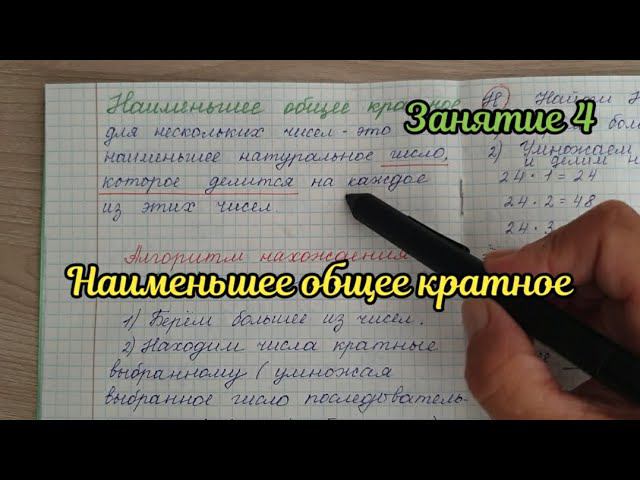 Наименьшее общее кратное
для нескольких чисел - это
наименьшее натуральное число,
которое делится на каждое
из этих чисел.
Алгоритм нахождения
1) Берём большее из чисел.
2) Находим числа кратные
выбранному (умножая
выбранное число последователь-
Найти
2) Умножаем
и делим н
24 · 1 = 24
24 · 2 = 48
24 · 3
Занятие 4
Наименьшее общее кратное